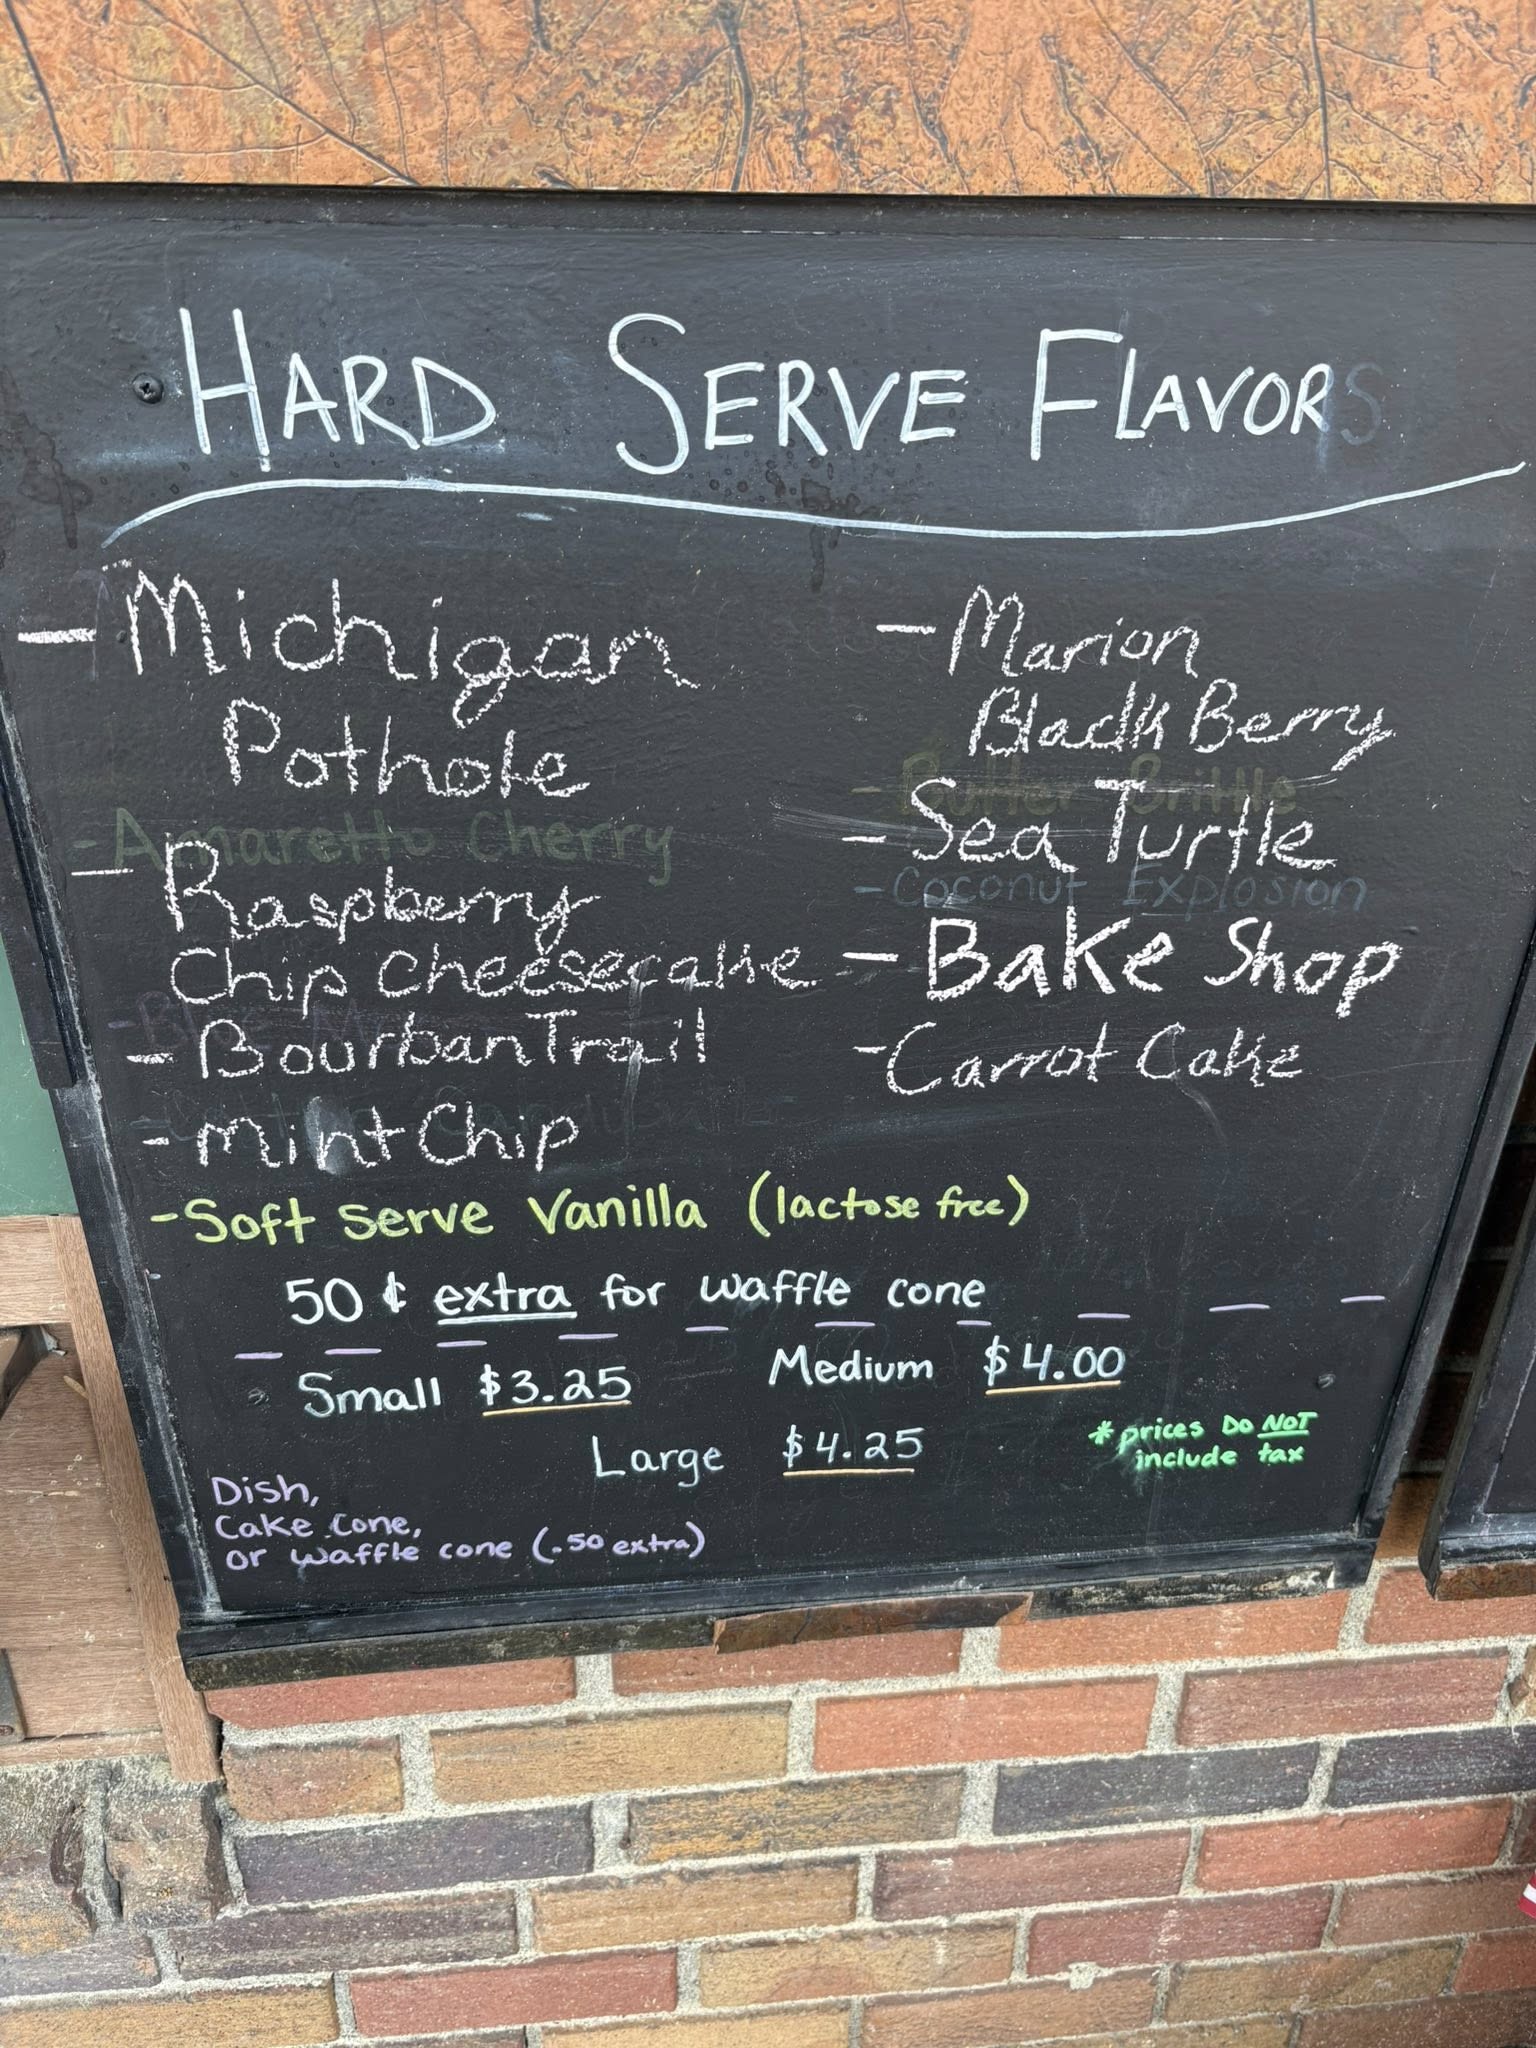 HARD SERVE FLAVORS
- Michigan
Pothole
- Amaretto Cherry
- Raspberry
Chip Cheesecake
- Bourban Trail
- Mint Chip
- Marion
BlackBerry
- Butter Brittle
- Sea Turtle
- Coconut Explosion
- Bake Shop
- Carrot Cake
- Soft Serve Vanilla (lactose free)
50 ¢ extra for waffle cone
Small $3.25
Medium $4.00
Large $4.25
* prices DO NOT
include tax
Dish,
Cake Cone,
or waffle cone (.50 extra)